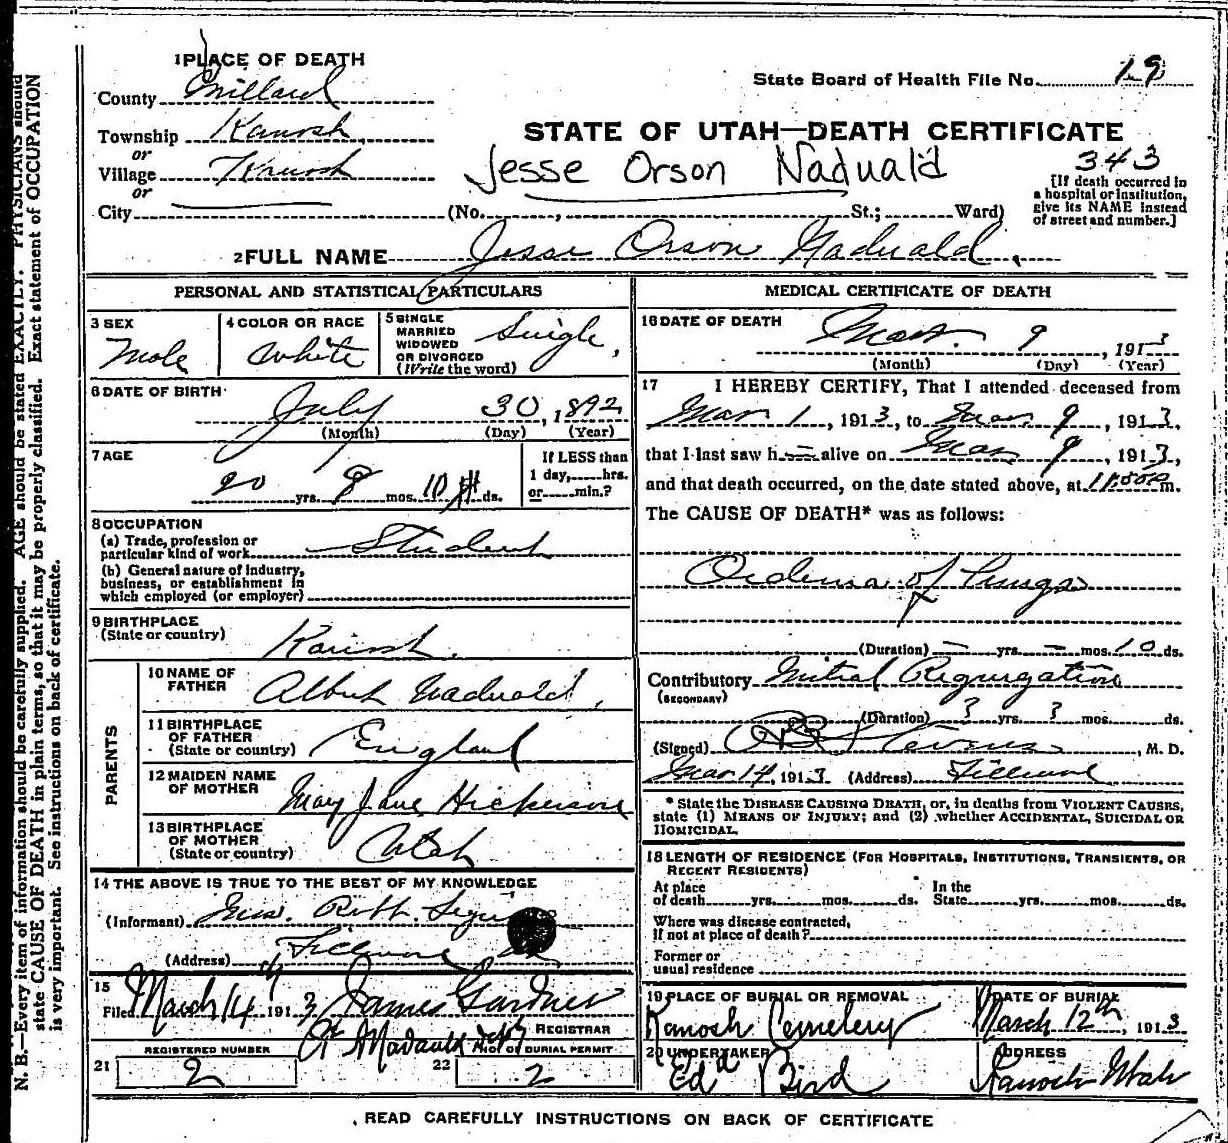 1 PLACE OF DEATH
County Millard
State Board of Health File No. 19
Township Kanosh
or
Village Kanosh
or
STATE OF UTAH—DEATH CERTIFICATE
Jesse Orson Naduald
343
[If death occurred in
a hospital or institution,
give its NAME instead
of street and number.]
City (No. , St.; Ward)
2 FULL NAME Jesse Orson Naduald.
PERSONAL AND STATISTICAL PARTICULARS
3 SEX
Male
4 COLOR OR RACE
White
5 SINGLE
MARRIED
WIDOWED
OR DIVORCED
(Write the word)
Single,
6 DATE OF BIRTH
July 30, 1892
(Month) (Day) (Year)
7 AGE
20 yrs. 8 mos. 10 ds.
If LESS than
1 day, hrs.
or min.?
8 OCCUPATION
(a) Trade, profession or
particular kind of work Student
(b) General nature of industry,
business, or establishment in
which employed (or employer)
9 BIRTHPLACE
(State or country)
Kanosh.
PARENTS
10 NAME OF
FATHER
Albert Naduald,
11 BIRTHPLACE
OF FATHER
(State or country)
England
12 MAIDEN NAME
OF MOTHER
May Jane Hickerson
13 BIRTHPLACE
OF MOTHER
(State or country)
Utah
14 THE ABOVE IS TRUE TO THE BEST OF MY KNOWLEDGE
(Informant) Mrs. Robt.
(Address) Fillmore
15
Filed March 14 1913 James Gardner
REGISTRAR
REGISTERED NUMBER
21 2
NO. OF BURIAL PERMIT
22 2
MEDICAL CERTIFICATE OF DEATH
16 DATE OF DEATH
Mar. 9, 1913
(Month) (Day) (Year)
17 I HEREBY CERTIFY, That I attended deceased from
Mar 1, 1913, to Mar 9, 1913,
that I last saw h alive on Mar 9, 1913,
and that death occurred, on the date stated above, at 11.50 P m.
The CAUSE OF DEATH* was as follows:
Oedema of Lungs
(Duration) – yrs. – mos. 10 ds.
Contributory Mitral Regurgation
(SECONDARY)
(Duration) 3 yrs. 3 mos. ds.
(Signed) Stevens, M. D.
Mar. 14, 1913 (Address) Fillmore
* State the DISEASE CAUSING DEATH, or, in deaths from VIOLENT CAUSES,
state (1) MEANS OF INJURY; and (2) whether ACCIDENTAL, SUICIDAL OR
HOMICIDAL.
18 LENGTH OF RESIDENCE (FOR HOSPITALS, INSTITUTIONS, TRANSIENTS, OR
RECENT RESIDENTS)
At place
of death yrs. mos. ds.
In the
State yrs. mos. ds.
Where was disease contracted,
if not at place of death?
Former or
usual residence
19 PLACE OF BURIAL OR REMOVAL
Kanosh Cemetery
DATE OF BURIAL
March 12th, 1913
20 UNDERTAKER
Ed Bird
ADDRESS
Kanosh Utah
READ CAREFULLY INSTRUCTIONS ON BACK OF CERTIFICATE
N. B.—Every item of information should be carefully supplied. AGE should be stated EXACTLY. PHYSICIANS should
state CAUSE OF DEATH in plain terms, so that it may be properly classified. Exact statement of OCCUPATION
is very important. See instructions on back of certificate.